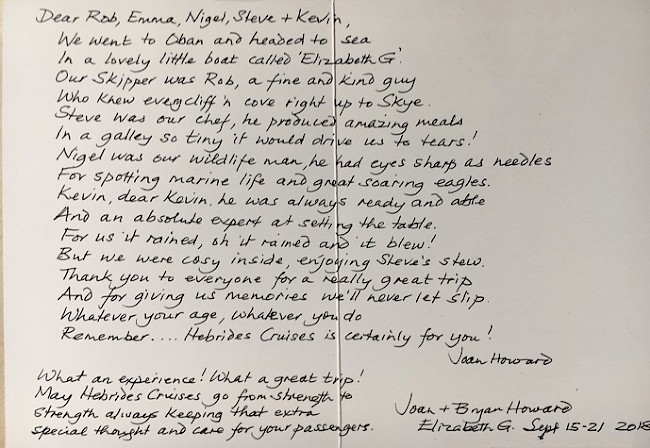 Dear Rob, Emma, Nigel, Steve + Kevin,
We went to Oban and headed to sea
In a lovely little boat called 'Elizabeth G'.
Our Skipper was Rob, a fine and kind guy
Who knew every cliff 'n cove right up to Skye.
Steve was our chef, he produced amazing meals
In a galley so tiny it would drive us to tears!
Nigel was our wildlife man, he had eyes sharp as needles
For spotting marine life and great soaring eagles.
Kevin, dear Kevin, he was always ready and able
And an absolute expert at setting the table.
For us it rained, oh it rained and it blew!
But we were cosy inside, enjoying Steve's stew.
Thank you to everyone for a really great trip
And for giving us memories we'll never let slip.
Whatever your age, whatever you do
Remember.... Hebrides Cruises is certainly for you!
Joan Howard
What an experience! What a great trip!
May Hebrides Cruises go from strength to
strength always keeping that extra
special thought and care for your passengers.
Joan + Bryan Howard
Elizabeth G. Sept 15-21 2018